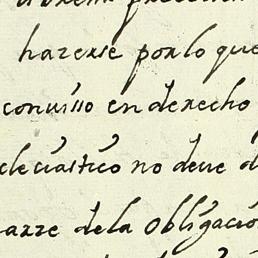 hazerse por lo que
convino en derecho
cleciastico no deve d
dela obligacio